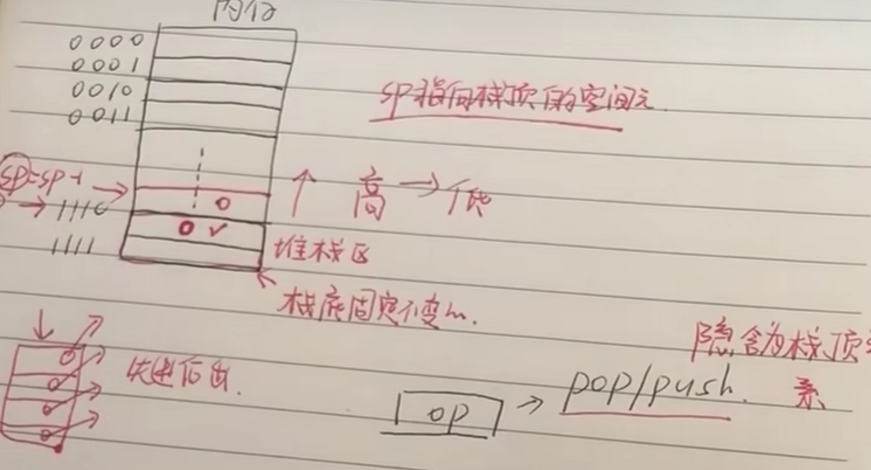 内存
0000
0001
0010
0011
SP指向栈顶的空间元
SP=SP-1
1110
高→低
1111
堆栈区
栈底固定不变
先进后出.
隐含为栈顶
OP → pop/push.